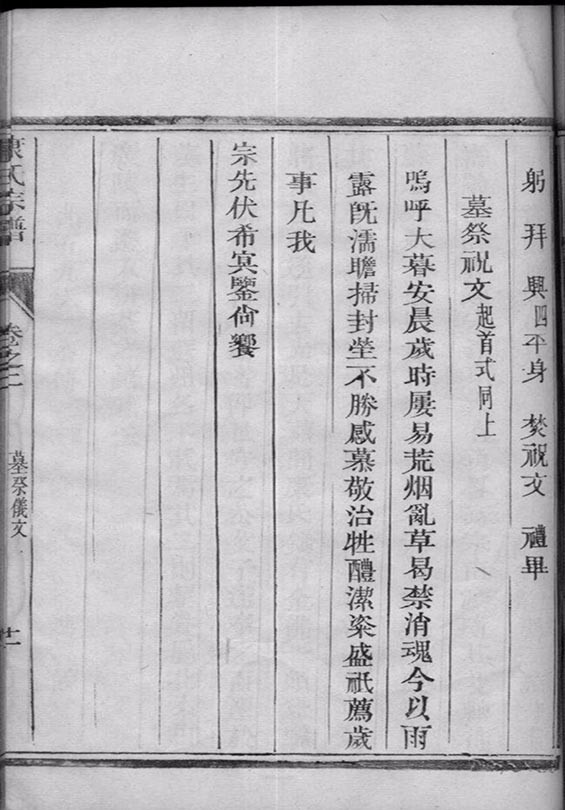 躬拜興四平身焚祝文禮畢
墓祭祝文起首式同上
嗚呼大暮安晨歲時屢易荒烟亂草曷禁消魂今以雨
露旣濡瞻掃封塋不勝感慕敬治牲醴潔粢盛祇薦歲
事凡我
宗先伏希冥鑒尙饗
康氏宗譜 卷之二 墓祭儀文 十一